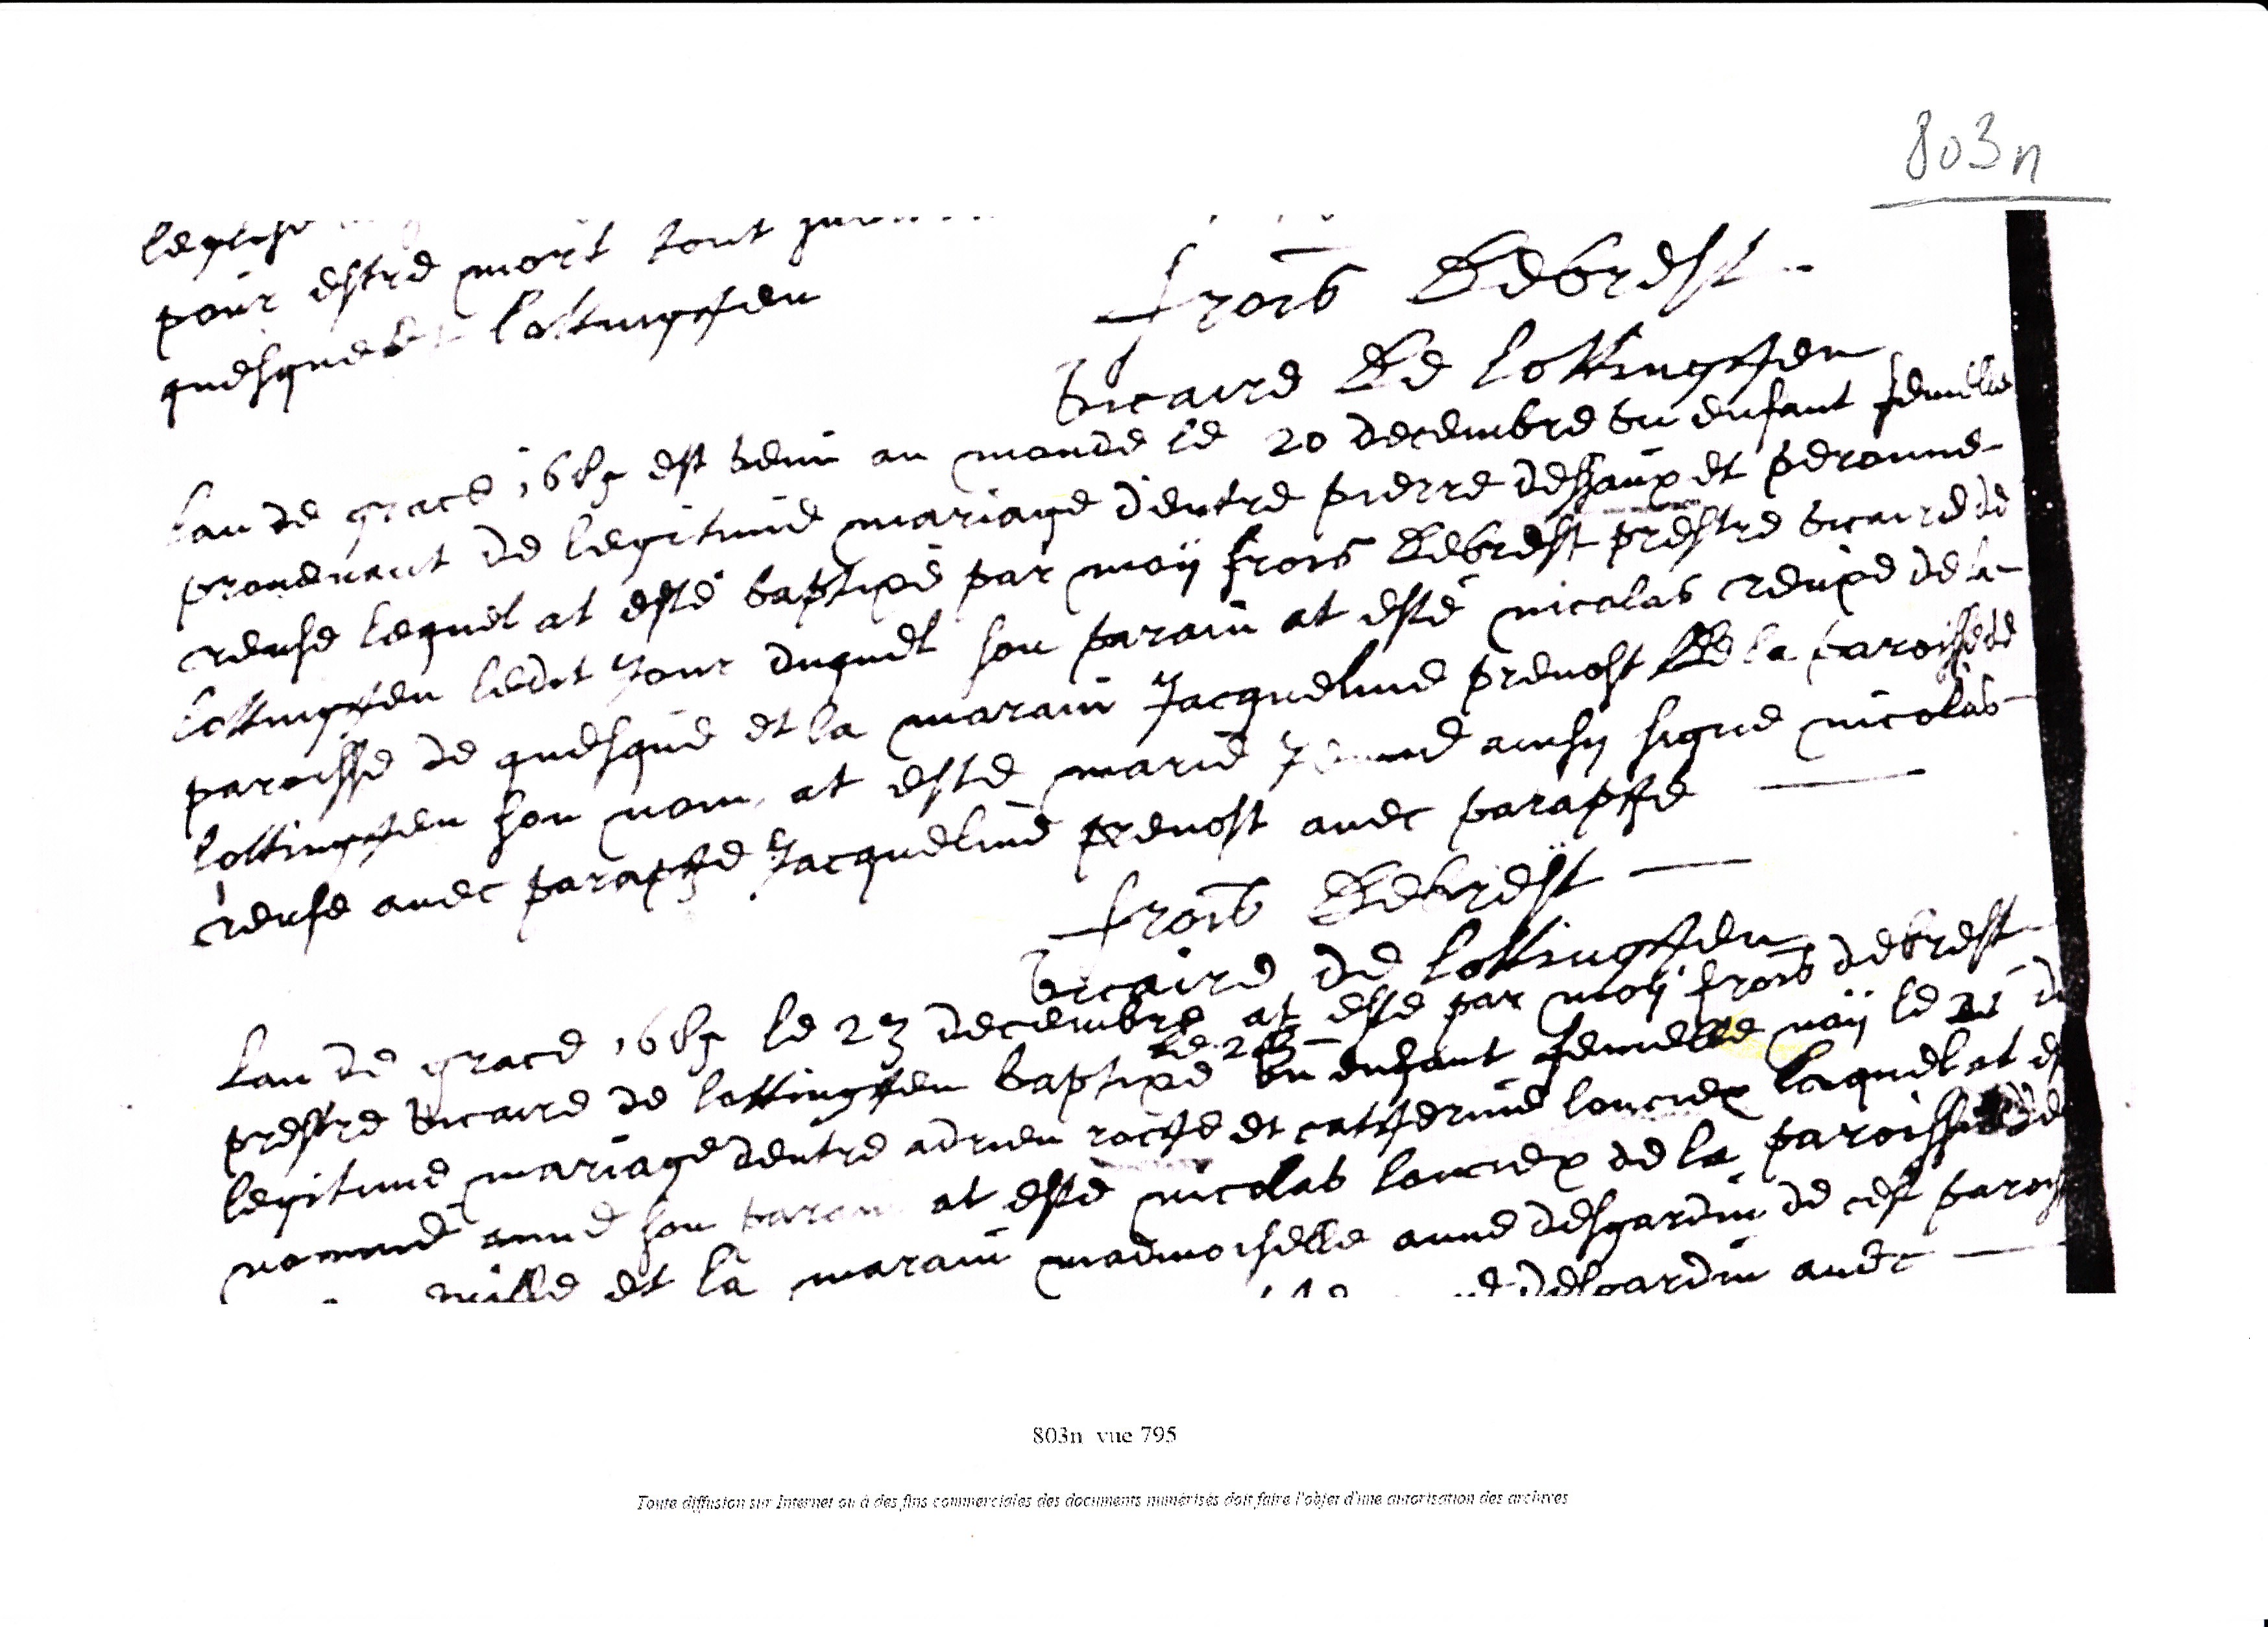 803n
pour estre mort tout
quesque lottinghen
frois Debrest
vicaire De lottinghen
lan de grace 1689 est venu au monde le 20 decembre vn enfant femelle
prouenant de legitime mariage d'entre pierre deshaux et peronne
reuse lequel at esté baptizé par moÿ frois Debrest prestre vicaire de
lottinghen ledit Jour duquel son parain at esté nicolas reuze de la
paroisse de quesque et la marain Jacqueline preuost De la paroisse de
lottinghen son nom at esté marie ainsy signe nicolas
reuse auec paraphe Jacqueline preuost auec paraphe
frois Debrest
vicaire de lottinghen
lan de grace 1689 le 23 decembre at esté par moÿ frois debrest
prestre vicaire de lottinghen baptizé vn enfant femelle naÿ le du
legitime mariage dentre adrien roche et catherine lonciex laquel at
nommé anne son parain at esté nicolas lonciex de la paroisse de
et la marain madmoiselle anne desgardin de cest
desgardin auec
803n vue 795
Toute diffusion sur Internet ou à des fins commerciales des documents numérisés doit faire l'objet d'une autorisation des archives